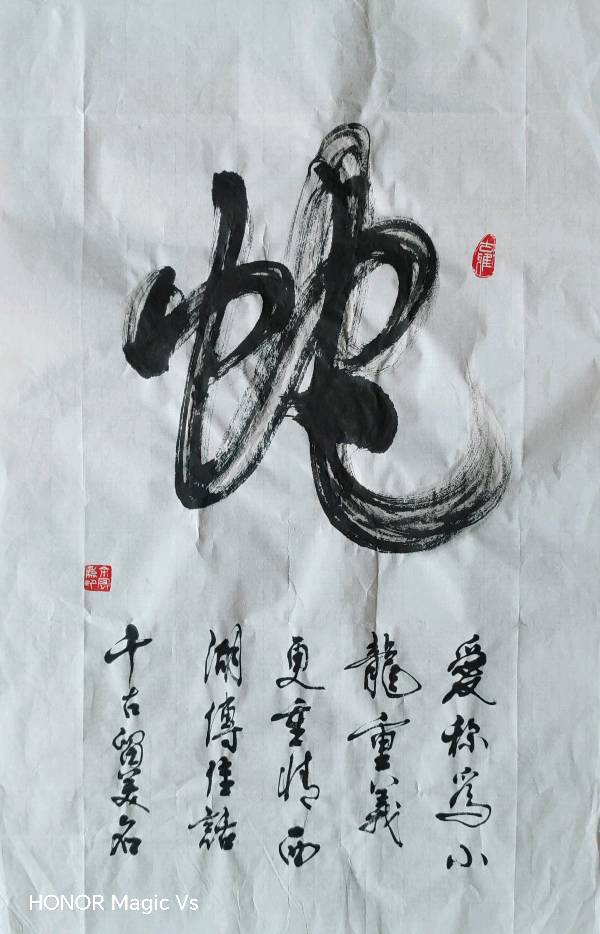 蛇
愛称為小
龍重義
更重情西
湖傳佳話
千古留美名
HONOR Magic Vs